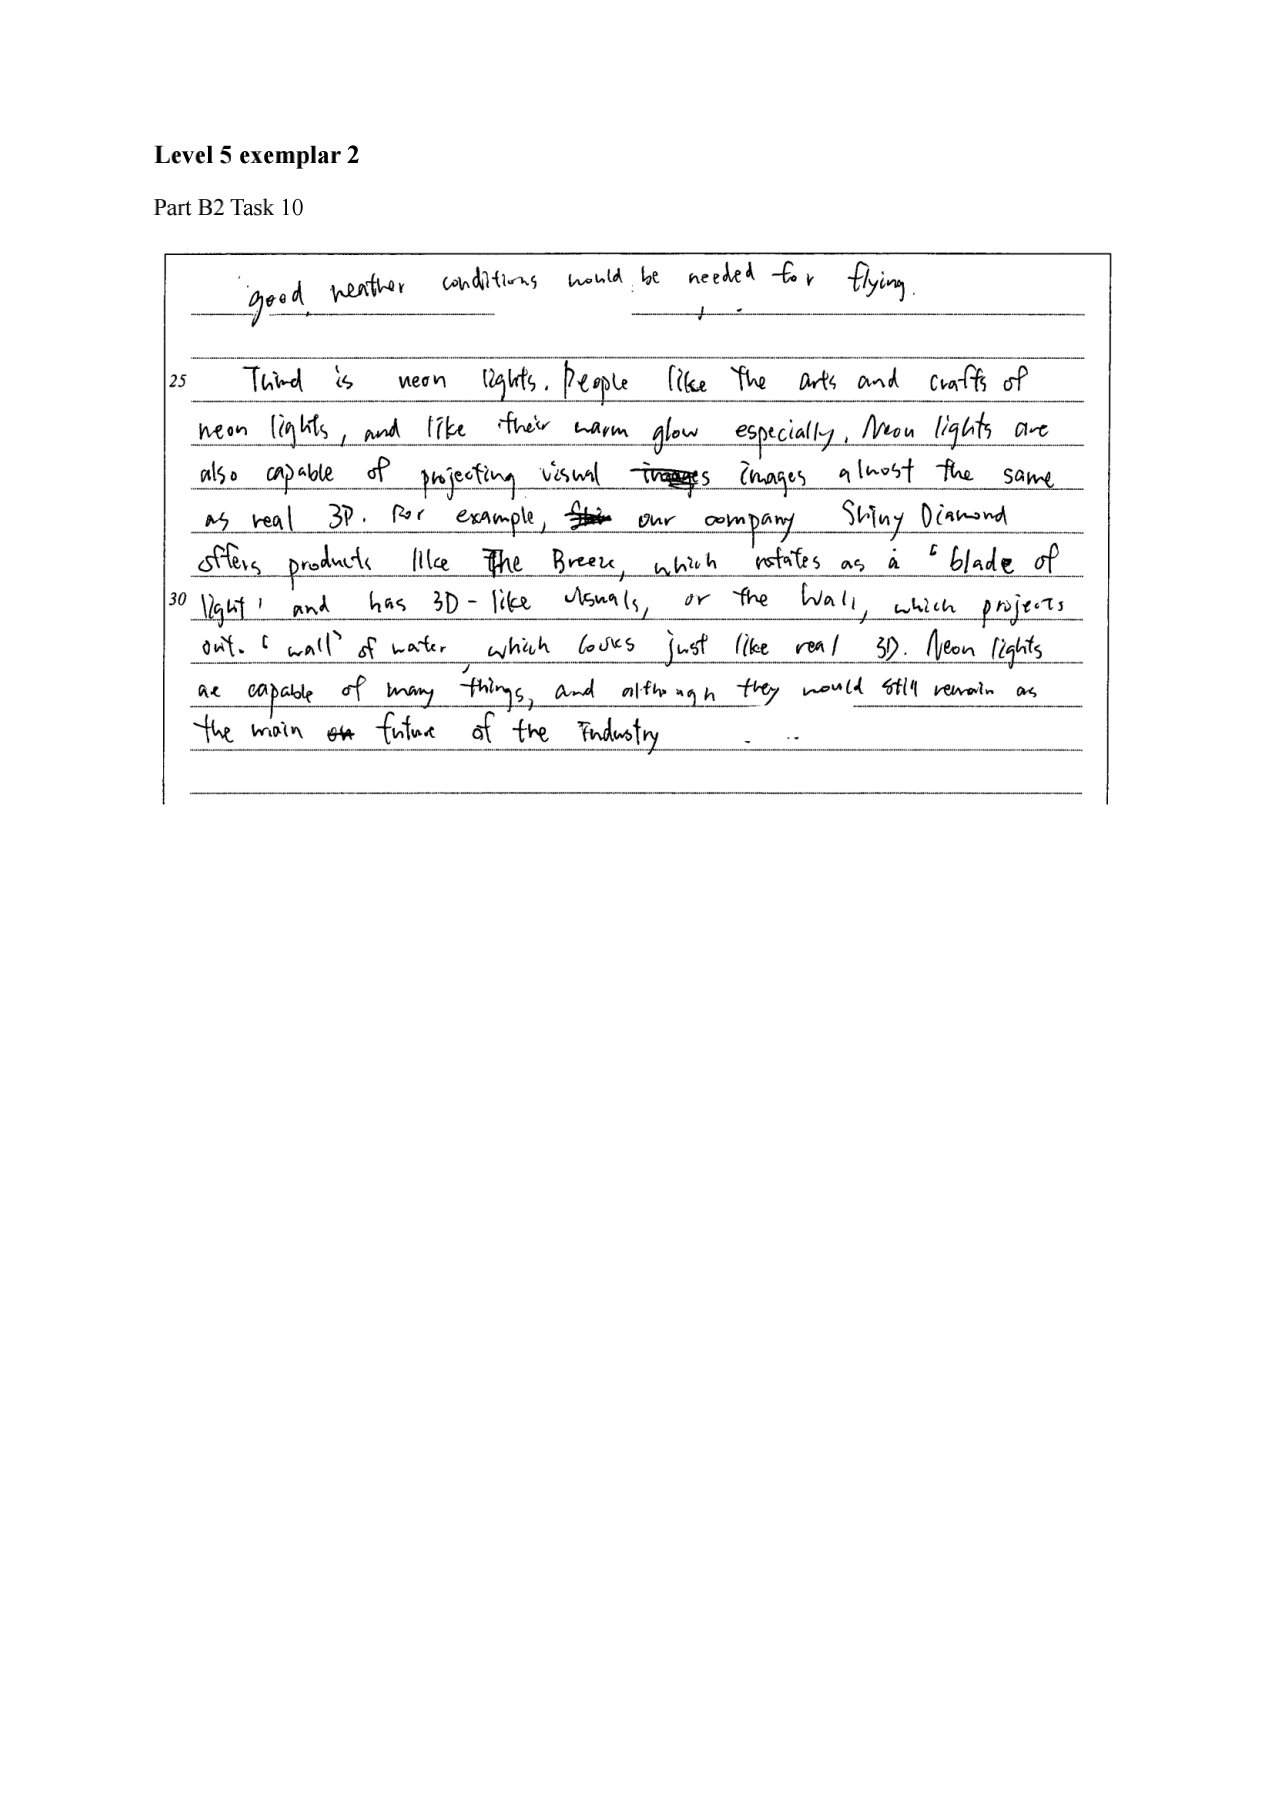 Level 5 exemplar 2
Part B2 Task 10
good weather conditions would be needed for flying.
25 Third is neon lights. People like the arts and crafts of
neon lights, and like their warm glow especially. Neon lights are
also capable of projecting visual images images almost the same
as real 3D. For example, our company Shiny Diamond
offers products like The Breeze, which rotates as a 'blade of
30 light' and has 3D-like visuals, or the Wall, which projects
out. 'wall' of water, which looks just like real 3D. Neon lights
are capable of many things, and although they would still remain as
the main future of the industry